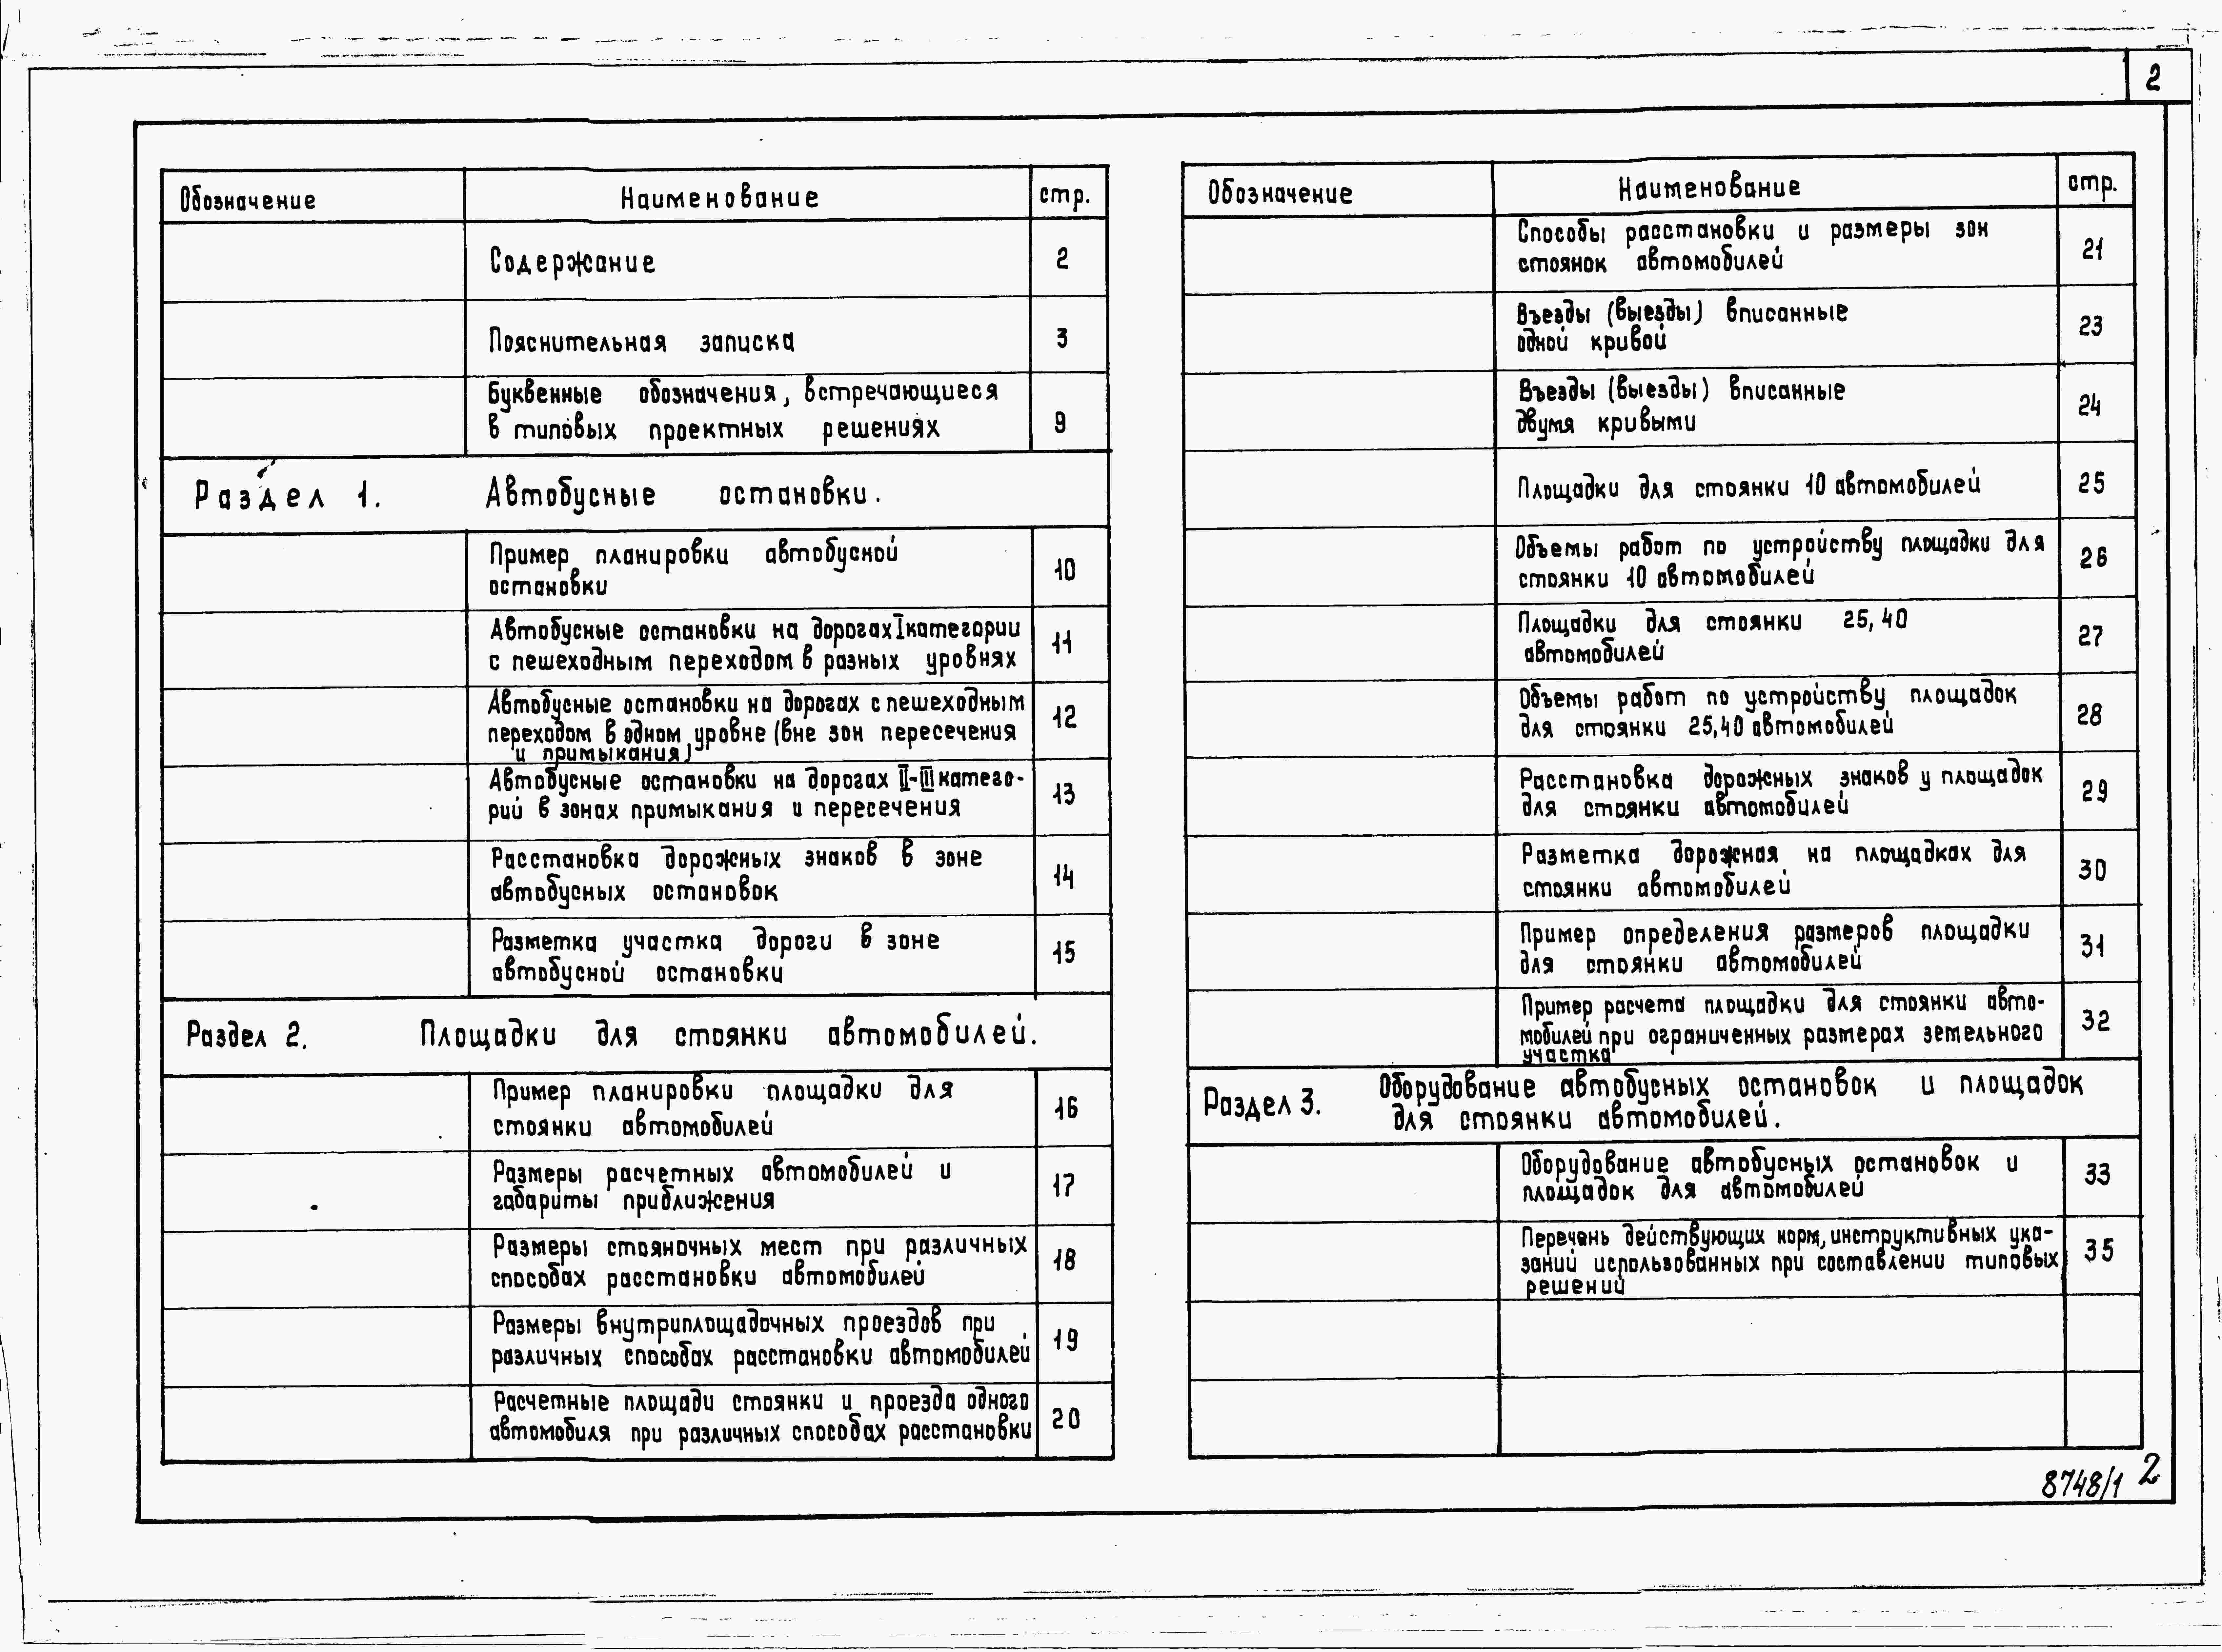 2
Обозначение Наименование стр.
Содержание 2
Пояснительная записка 3
Буквенные обозначения, встречающиеся
в типовых проектных решениях 9
Раздел 1. Автобусные остановки.
Пример планировки автобусной
остановки 10
Автобусные остановки на дорогах I категории
с пешеходным переходом в разных уровнях 11
Автобусные остановки на дорогах с пешеходным
переходом в одном уровне (вне зон пересечения
и примыкания) 12
Автобусные остановки на дорогах II-III катего-
рий в зонах примыкания и пересечения 13
Расстановка дорожных знаков в зоне
автобусных остановок 14
Разметка участка дороги в зоне
автобусной остановки 15
Раздел 2. Площадки для стоянки автомобилей.
Пример планировки площадки для
стоянки автомобилей 16
Размеры расчетных автомобилей и
габариты приближения 17
Размеры стояночных мест при различных
способах расстановки автомобилей 18
Размеры внутриплощадочных проездов при
различных способах расстановки автомобилей 19
Расчетные площади стоянки и проезда одного
автомобиля при различных способах расстановки 20
Обозначение Наименование стр.
Способы расстановки и размеры зон
стоянок автомобилей 21
Въезды (выезды) вписанные
одной кривой 23
Въезды (выезды) вписанные
двумя кривыми 24
Площадки для стоянки 10 автомобилей 25
Объемы работ по устройству площадки для
стоянки 10 автомобилей 26
Площадки для стоянки 25, 40
автомобилей 27
Объемы работ по устройству площадок
для стоянки 25,40 автомобилей 28
Расстановка дорожных знаков у площадок
для стоянки автомобилей 29
Разметка дорожная на площадках для
стоянки автомобилей 30
Пример определения размеров площадки
для стоянки автомобилей 31
Пример расчета площадки для стоянки авто-
мобилей при ограниченных размерах земельного
участка 32
Раздел 3. Оборудование автобусных остановок и площадок
для стоянки автомобилей.
Оборудование автобусных остановок и
площадок для автомобилей 33
Перечень действующих норм, инструктивных ука-
заний использованных при составлении типовых
решений 35
8748/1 2